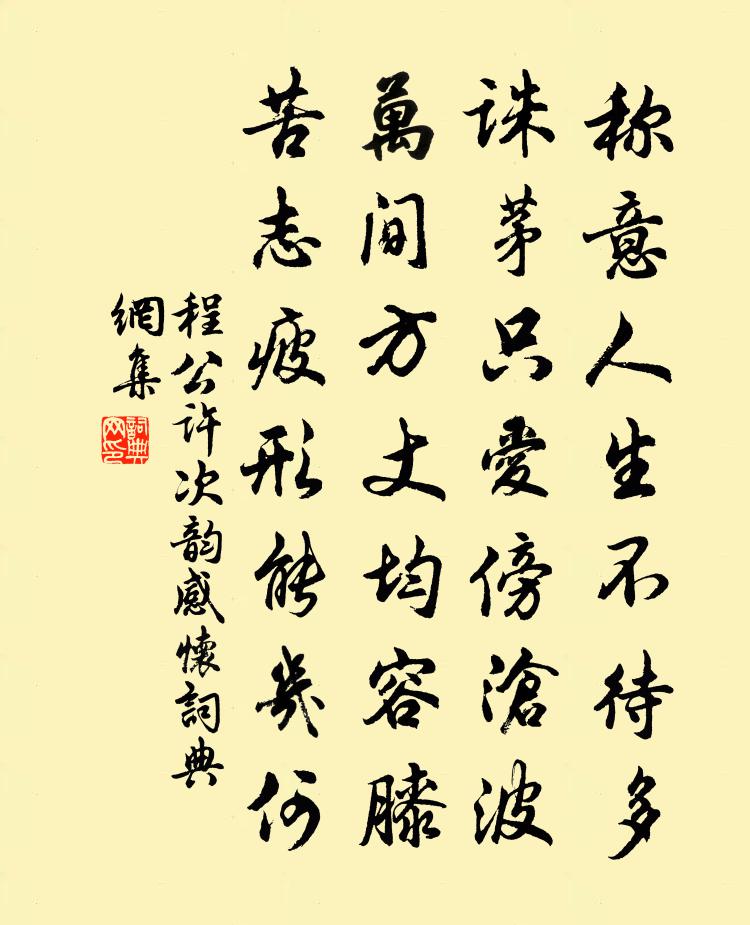 称意人生不待多
誅茅只愛傍滄波
萬間方丈均容膝
苦志疲形能幾何
程公許次韵感懷詞典
網集
詞典
网印